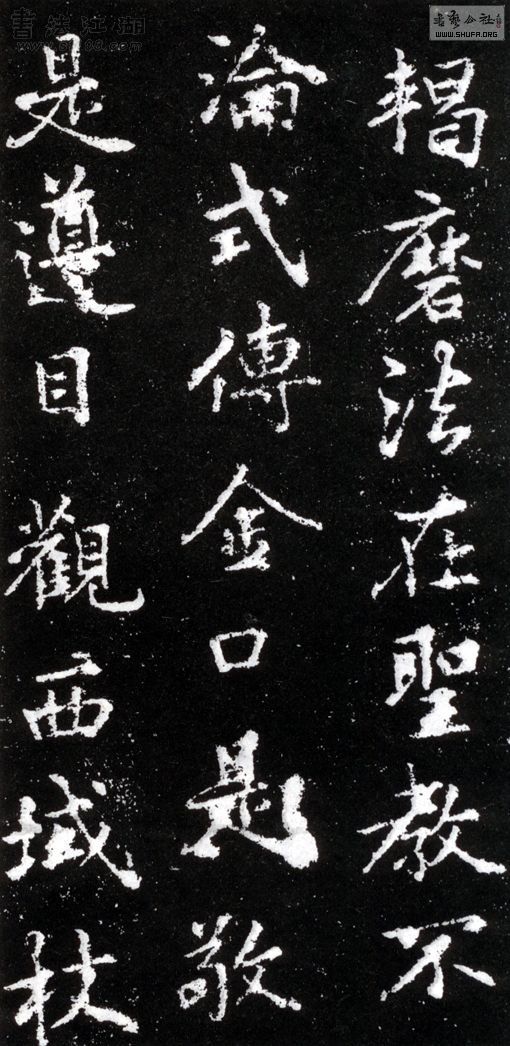 羯磨法在聖教不
淪式傳金口是敬
是遵目觀西域杖
書法江湖
書藝公社
WWW.SHUFA.ORG